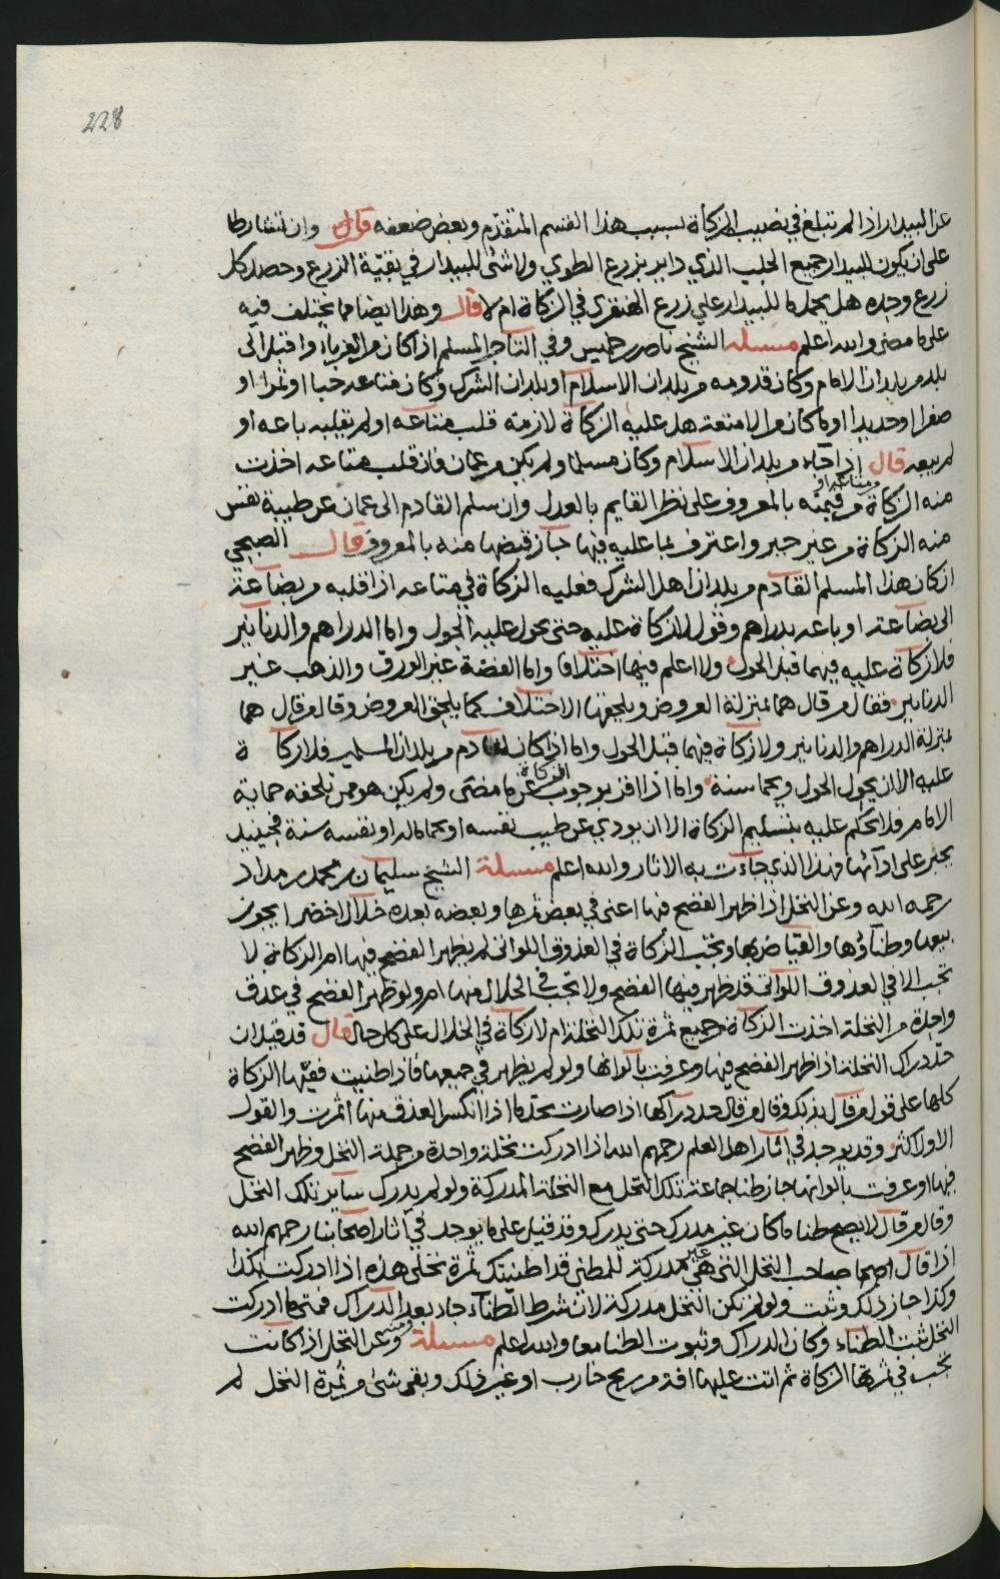 228
عن البيدار اذا لم تبلغ في نصيبه الزكاة بسبب هذا القسم المتقدم وبعض ضعفه قال وان تشارطا
على ان يكون للبيدار جميع الجلب الذي داير بزرع الطوي ولا شئ للبيدار في بقية الزرع وحصد كل
زرع وحده هل يحمل ما للبيدار على زرع الهنقري في الزكاة ام لا قال وهذا ايضا مما يختلف فيه
على ما مضى والله اعلم مسئلة الشيخ ناصر بن خميس وفي التاجر المسلم اذا كان من الغرباء واقبل الى
بلد من بلدان الامام وكان قدومه من بلدان الاسلام او بلدان الشرك وكان متاعه حبا او تمرا او
صفرا او حديدا او ما كان من الامتعة هل عليه الزكاة لازمة قلب متاعه او لم يقلبه باعه او
لم يبعه قال اذا جاء من بلدان الاسلام وكان مسلما ولم يكن من عمان فان قلب متاعه اخذت
منه الزكاة من متاعه او من قيمته بالمعروف على نظر القايم بالعدل وان سلم القادم الى عمان عن طيبة نفس
منه الزكاة من غير جبر واعترف بما عليه فيها جاز قبضها منه بالمعروف قال الصبحي
ان كان هذا المسلم القادم من بلدان اهل الشرك فعليه الزكاة في متاعه اذا قلبه من بضاعة
الى بضاعة او باعه بدراهم وقول لا زكاة عليه حتى يحول عليه الحول واما الدراهم والدنانير
فلا زكاة عليه فيهما قبل الحول ولا اعلم فيها اختلافا واما الفضة غير الورق والذهب غير
الدنانير فقال من قال هما بمنزلة العروض ويلحقها الاختلاف كما يلحق العروض وقال من قال هما
بمنزلة الدراهم والدنانير ولا زكاة فيهما قبل الحول واما اذا كان القادم من بلدان المسلمين فلا زكاة
عليه الا ان يحول الحول ويحما سنة واما اذا اقر بوجوب الزكاة عن ما مضى ولم يكن هو ممن تلحقه حماية
الامام فلا يحكم عليه بتسليم الزكاة الا ان يودي عن طيب نفسه او يحما ماله او نفسه سنة فحينيذ
يجبر على ادآئها فهذا الذي جاءت به الاثار والله اعلم مسئلة الشيخ سليمان بن محمد بن مداد
رحمه الله وعن النخل اذا ظهر الفضح فيها اعني في بعض ثمرها وبعضه بعده خلال اخضر ايجوز
بيعها وطنآؤها والقياض بها وتجب الزكاة في العذوق اللواتى لم يظهر الفضح فيها ام الزكاة لا
تجب الا في العذوق اللواتى قد ظهر فيها الفضح ولا تجب في الخلال منها ام ولو ظهر الفضح في عذق
واحدة من النخلة اخذت الزكاة من جميع ثمرة تلك النخلة ام لا زكاة في الخلال على كل حال قال قد قيل ان
حد دراك النخلة اذا ظهر الفضح فيها وعرفت بألوانها ولو لم يظهر في جميعها فاذا طنيت ففيها الزكاة
كلها على قول من قال بذلك وقال من قال حد دراكها اذا صارت بحد ما اذا انكسر العذق منها اثمرت والقول
الاول اكثر وقد يوجد في اثار اهل العلم رحمهم الله اذا ادركت نخلة واحدة من جملة النخل وظهر الفضح
فيها او عرفت بالوانها جاز طنا جماعة تلك النخل مع النخلة المدركة ولو لم يدرك ساير تلك النخل
وقال من قال لا يصح طنا ما كان غير مدرك حتى يدرك وقد قيل على ما يوجد في آثار اصحابنا رحمهم الله
اذا قال صاحب النخل التي هي غير مدركة للمطني قد اطنيتك ثمرة نخلي هذه اذا ادركت بكذا
وكذا جاز ذلك وثبت ولو لم تكن النخل مدركة لان شرط الطناء جاء بعد الدراك فمتى ما ادركت
النخل ثبت الطناء وكان الدراك وثبوت الطنا معا والله اعلم مسئلة ومنه وعن النخل اذا كانت
تجب في ثمرتها الزكاة ثم اتت عليها افة من ريح خارب او غير ذلك وبقى شئ من ثمرة النخل لم